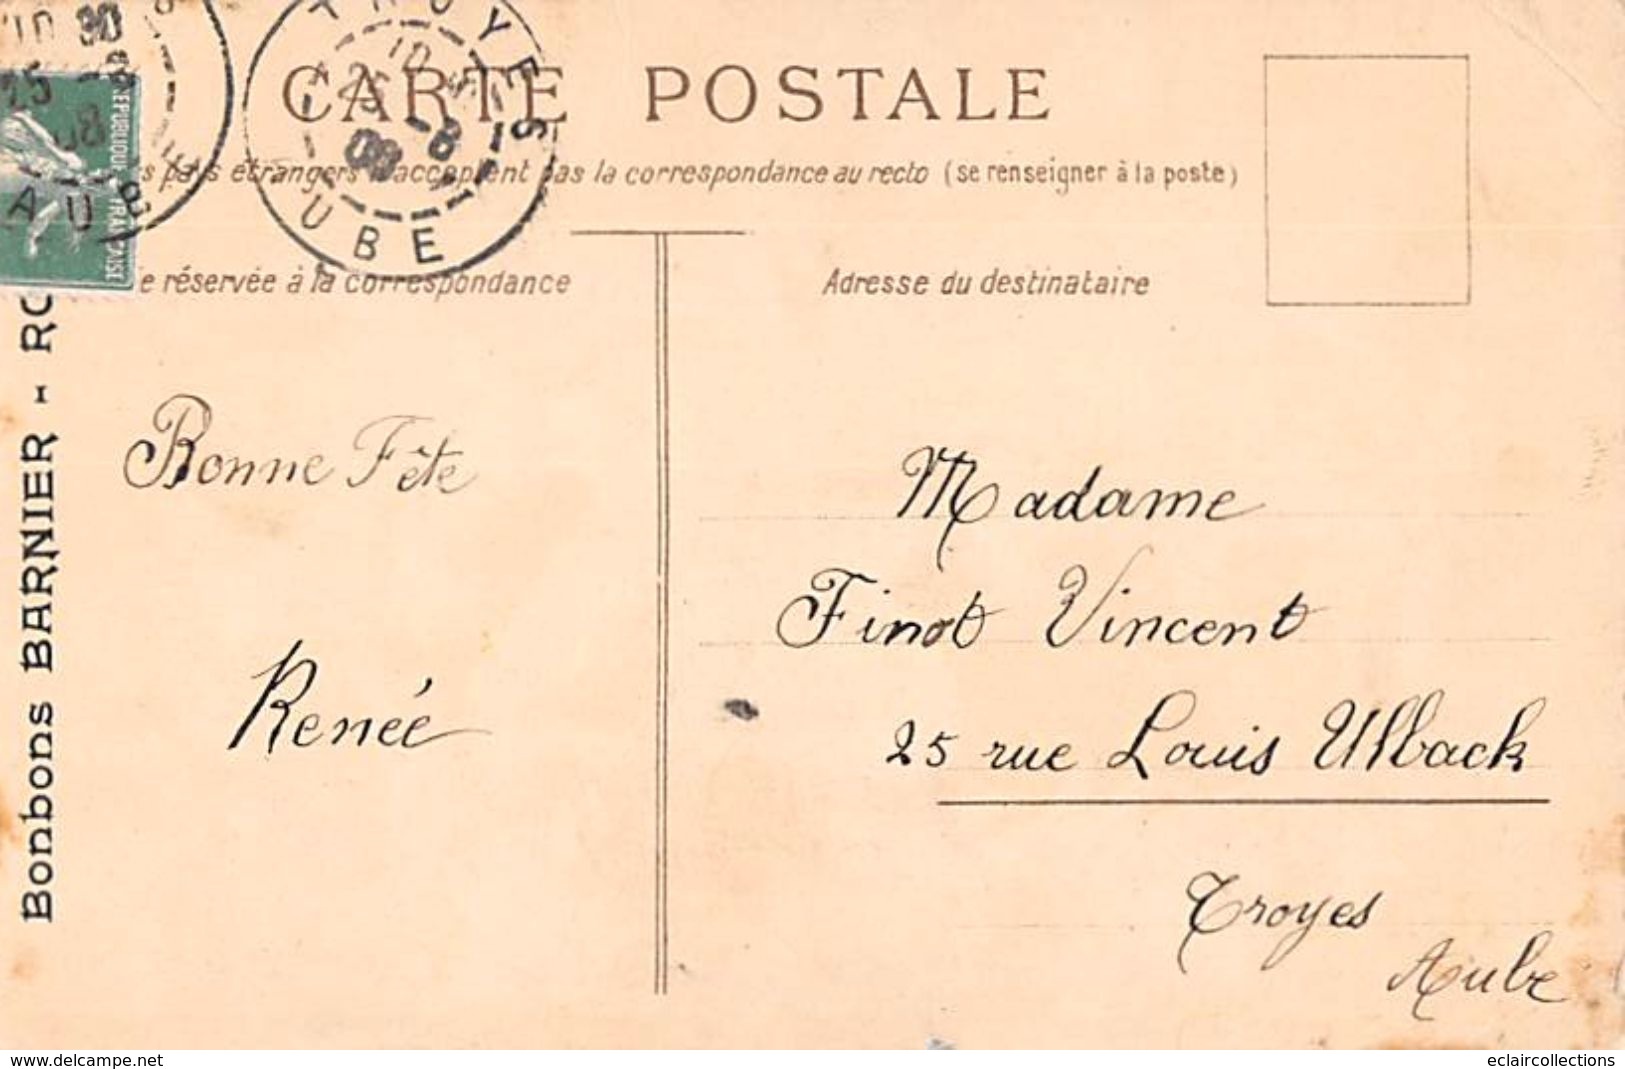 CARTE POSTALE
pays étrangers n'acceptent pas la correspondance au recto (se renseigner à la poste)
réservée à la correspondance
Adresse du destinataire
TROYES
25 -8
08
AUBE
10 30
25
08
AUBE
REPUBLIQUE FRANÇAISE
Bonbons BARNIER - RO
Bonne Fête
Renée
Madame
Finot Vincent
25 rue Louis Ulback
Troyes
Aube
www.delcampe.net
eclaircollections